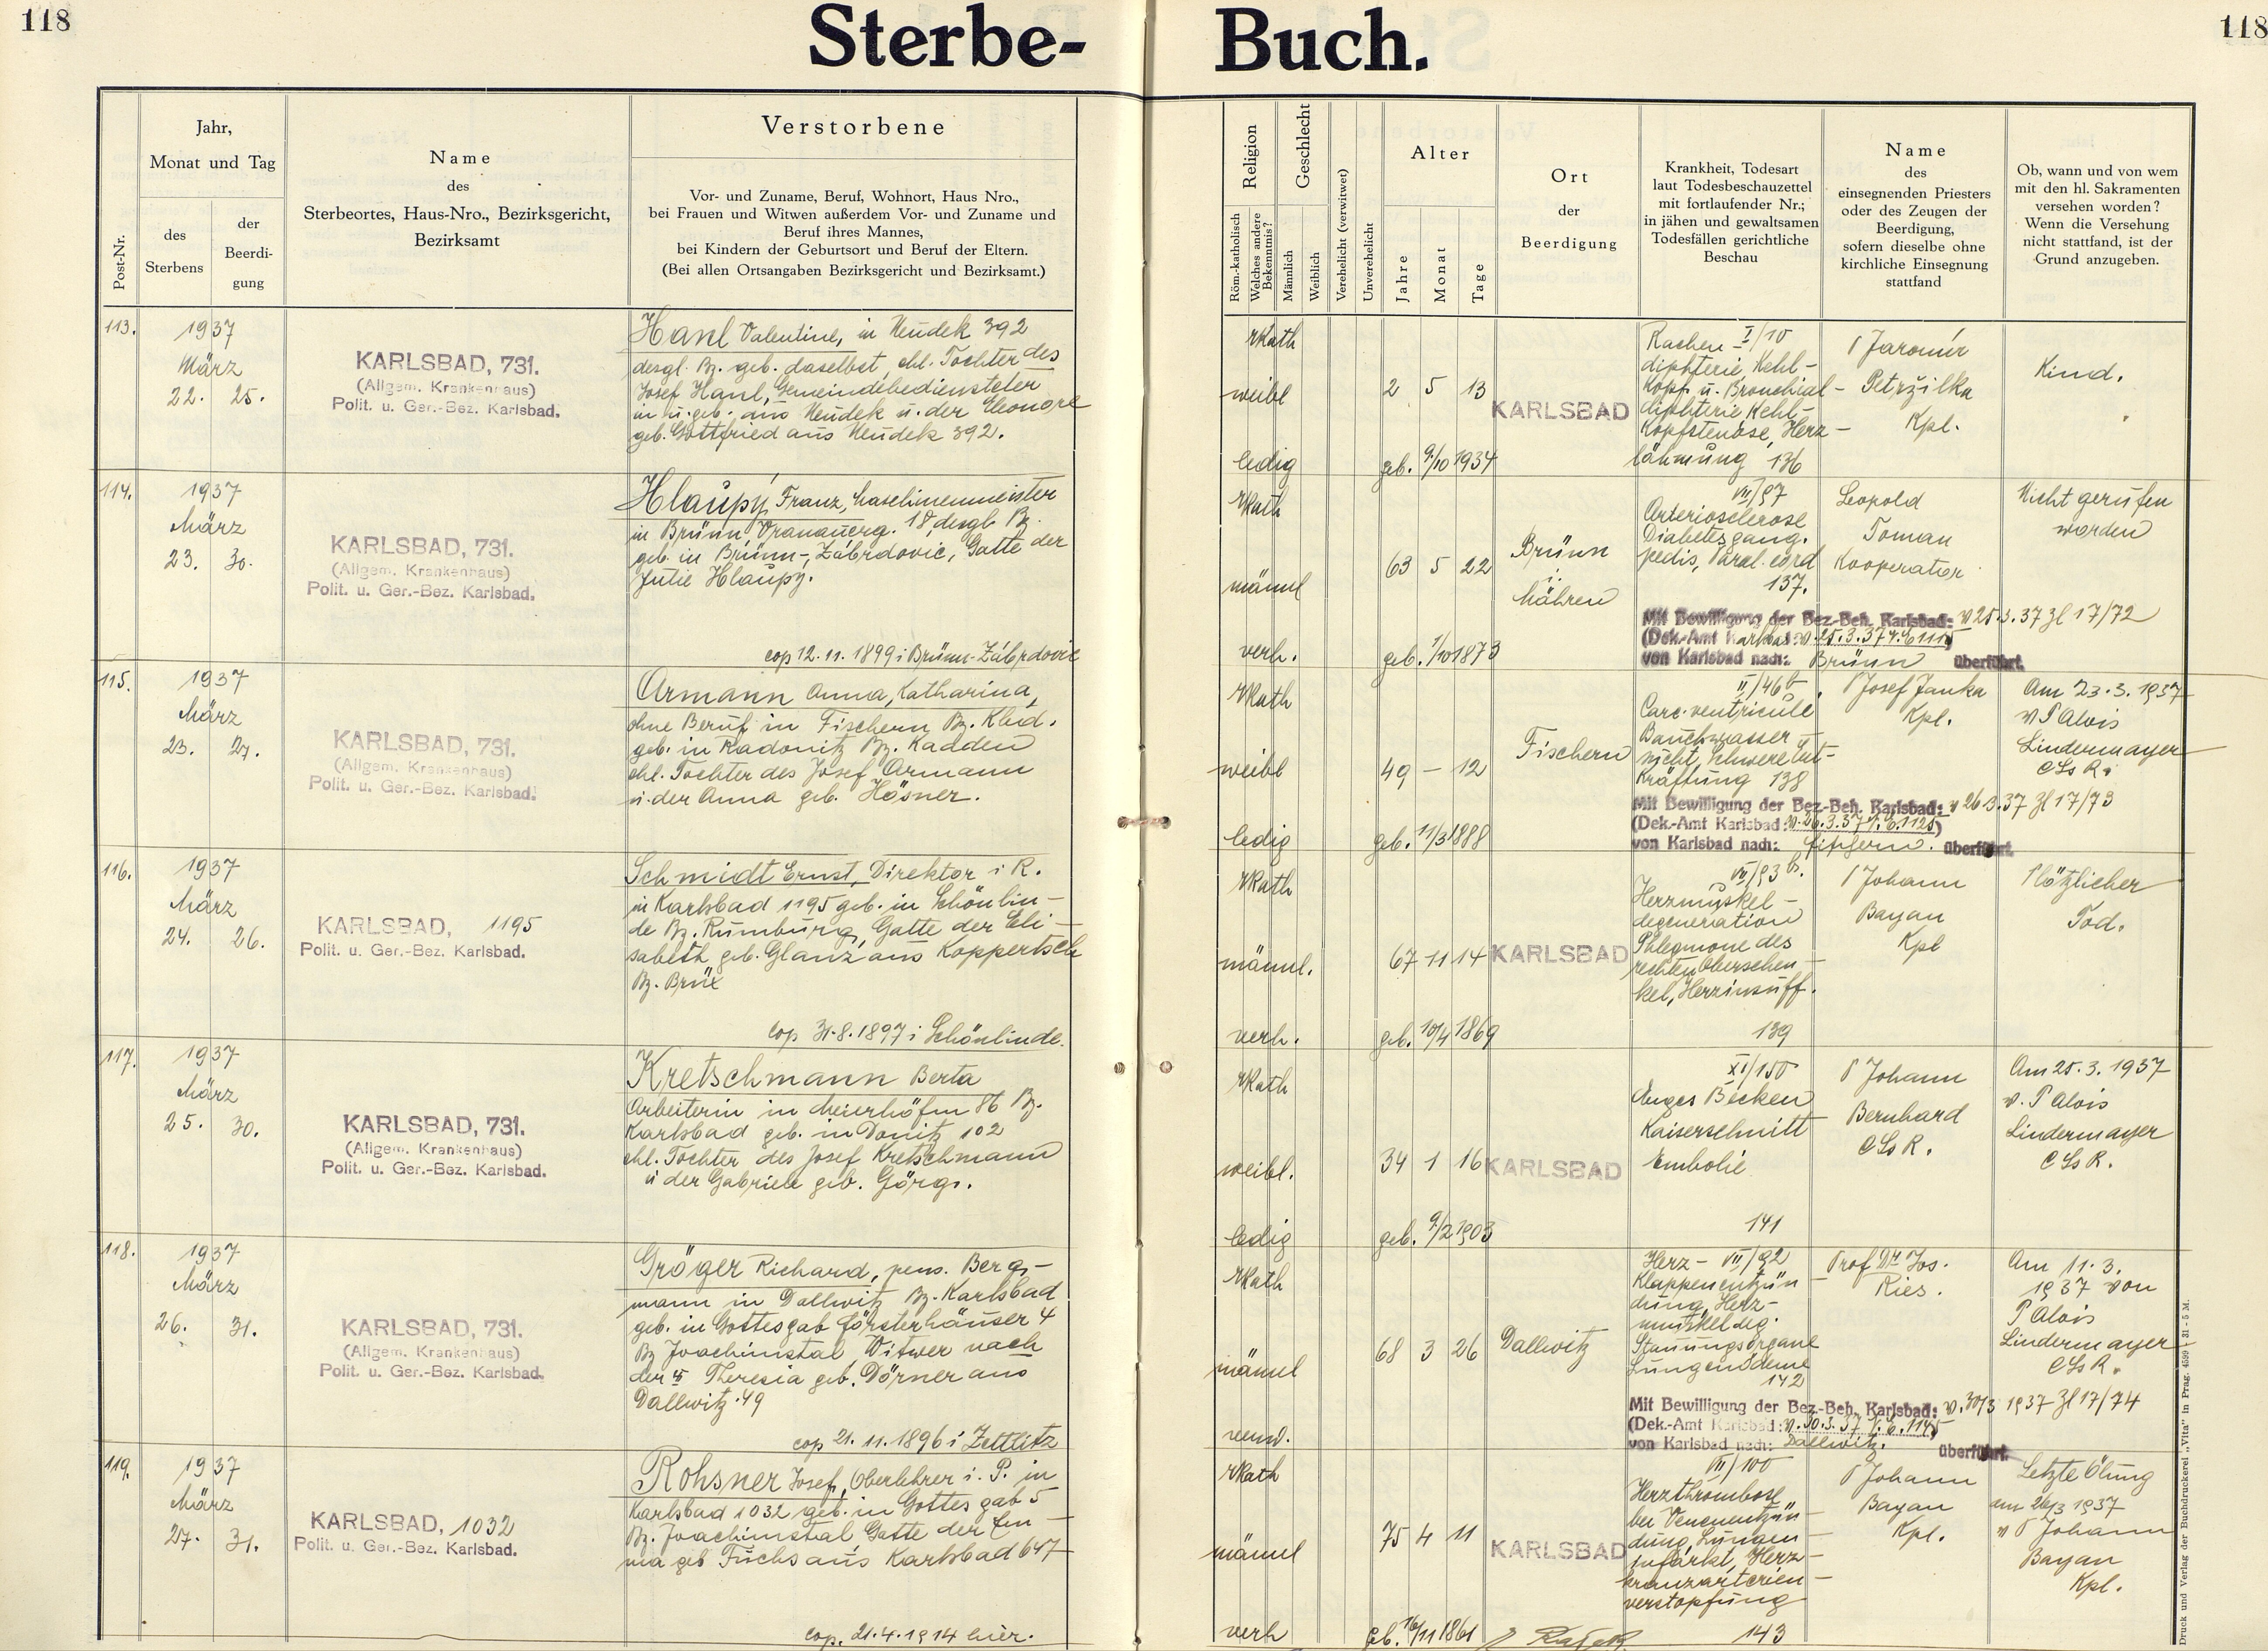 118
Sterbe-
Buch.
118
Post-Nr.
Jahr,
Monat und Tag
des
Sterbens
der
Beerdi-
gung
Name
des
Sterbeortes, Haus-Nro., Bezirksgericht,
Bezirksamt
Verstorbene
Vor- und Zuname, Beruf, Wohnort, Haus Nro.,
bei Frauen und Witwen außerdem Vor- und Zuname und
Beruf ihres Mannes,
bei Kindern der Geburtsort und Beruf der Eltern.
(Bei allen Ortsangaben Bezirksgericht und Bezirksamt.)
Religion
Röm.-katholisch
Welches andere
Bekenntnis?
Geschlecht
Männlich
Weiblich
Verehelicht (verwitwet)
Unverehelicht
Alter
Jahre
Monat
Tage
Ort
der
Beerdigung
Krankheit, Todesart
laut Todesbeschauzettel
mit fortlaufender Nr.;
in jähen und gewaltsamen
Todesfällen gerichtliche
Beschau
Name
des
einsegnenden Priesters
oder des Zeugen der
Beerdigung,
sofern dieselbe ohne
kirchliche Einsegnung
stattfand
Ob, wann und von wem
mit den hl. Sakramenten
versehen worden?
Wenn die Versehung
nicht stattfand, ist der
Grund anzugeben.
113.
1937
März
22. 25.
KARLSBAD, 731.
(Allgem. Krankenhaus)
Polit. u. Ger.-Bez. Karlsbad.
Hanl Valentine, in Neudek 392
desgl. Bz. geb. daselbst, ehl. Tochter des
Josef Hanl, Gemeindebediensteter
in u. geb. aus Neudek u. der Eleonore
geb. Gottfried aus Neudek 392.
rkath
weibl
ledig
2 5 13
geb. 9/10 1934
KARLSBAD
Rachen I/10
diphterie, Kehl-
kopf u. Bronchial-
diphterie Kehl-
kopfstenose, Herz-
lähmung 136
P Jaromír
Petržilka
Kpl.
Kind.
114.
1937
März
23. 30.
KARLSBAD, 731.
(Allgem. Krankenhaus)
Polit. u. Ger.-Bez. Karlsbad.
Hlaupý Franz,
in Brünn, 18, desgl. Bz.
geb. in Brünn-Zábrdovic, Gatte der
Julie Hlaupy.
cop 12.11.1899 i Brünn-Zábrdovic
rkath
männl
verh.
63 5 22
geb. 1/10 1873
Brünn
i.
Mähren
VII/97
Arteriosclerose
Diabetes gang.
pedis, Paral. cord
137.
Mit Bewilligung der Bez-Beh. Karlsbad: v 25.3.37 Zl 17/72
(Dek.-Amt Karlsbad: v. 25.3.37
von Karlsbad nach: Brünn überführt.
Leopold
Toman
Kooperator
Nicht gerufen
worden
115.
1937
März
23. 27.
KARLSBAD, 731.
(Allgem. Krankenhaus)
Polit. u. Ger.-Bez. Karlsbad.
Armann Anna, Katharina,
ohne Beruf in Fischern Bz. Kbd.
geb. in Radonitz Bz. Kadden
ehl. Tochter des Josef Armann
u. der Anna geb. Hösner.
rkath
weibl
ledig
49 – 12
geb. 11/3 1888
Fischern
II/46 b
Carc. ventriculi
Bauchwasser-
sucht, schwere Ent-
kräftung 138
Mit Bewilligung der Bez-Beh. Karlsbad: v 26.3.37 Zl 17/73
(Dek.-Amt Karlsbad: v. 26.3.37
von Karlsbad nach: Fischern. überführt.
P Josef Janka
Kpl.
Am 23.3.1937
v P Alois
Lindermayer
CSsR.
116.
1937
März
24. 26.
KARLSBAD, 1195
Polit. u. Ger.-Bez. Karlsbad.
Schmidt Ernst, Direktor i R.
in Karlsbad 1195 geb. in Schönlin-
de Bz. Rumburg, Gatte der Eli-
sabeth geb. Glanz aus Koppertsch
Bz. Brüx
cop 31.8.1897 i Schönlinde.
rkath
männl.
verh.
67 11 14
geb. 10/4 1869
KARLSBAD
VII/93 b.
Herzmuskel-
degeneration
Phlegmone des
rechten Oberschen-
kel, Herzinsuff.
139
P Johann
Bayan
Kpl
Plötzlicher
Tod.
117.
1937
März
25. 30.
KARLSBAD, 731.
(Allgem. Krankenhaus)
Polit. u. Ger.-Bez. Karlsbad.
Kretschmann Berta
Arbeiterin in Meierhöfen 86 Bz.
Karlsbad geb. in Donitz 102
ehl. Tochter des Josef Kretschmann
u der Gabriele geb. Görgs.
rkath
weibl.
ledig
34 1 16
geb. 9/2 1903
KARLSBAD
XI/150
Enges Becken
Kaiserschnitt
Embolie
141
P Johann
Bernhard
CSsR.
Am 25.3.1937
v. P Alois
Lindermayer
CSsR.
118.
1937
März
26. 31.
KARLSBAD, 731.
(Allgem. Krankenhaus)
Polit. u. Ger.-Bez. Karlsbad.
Gröger Richard, pens. Berg-
mann in Dallwitz Bz. Karlsbad
geb. in Gottesgab Försterhäuser 4
Bz Joachimstal Witwer nach
der Theresia geb. Dörner aus
Dallwitz 49
cop 21.11.1896 i Zettlitz
rkath
männl
68 3 26
Dallwitz
Herz- VII/92
klappenentzün-
dung, Herz-
muskeldeg.
Stauungsorgane
Lungenödeme
142
Mit Bewilligung der Bez-Beh. Karlsbad: v. 30/3 1937 Zl 17/74
(Dek.-Amt Karlsbad: v. 30.3.37
von Karlsbad nach: Dallwitz. überführt.
Prof Dr. Jos.
Ries.
Am 11.3.
1937 von
P Alois
Lindermayer
CSsR.
119.
1937
März
27. 31.
KARLSBAD, 1032
Polit. u. Ger.-Bez. Karlsbad.
Rohsner Josef, Oberlehrer i. P. in
Karlsbad 1032 geb. in Gottesgab 5
Bz. Joachimstal Gatte der Em-
ma geb Fuchs aus Karlsbad 647
cop. 21.4.1914 hier.
rkath
männl
verh
75 4 11
geb. 16/11 1861
KARLSBAD
VII/100
Herzthrombose
bei Venenentzün-
dung, Lungen-
infarkt, Herz-
kranzarterien-
verstopfung
143
P Johann
Bayan
Kpl.
Letzte Ölung
am 26/3 1937
v P Johann
Bayan
Kpl.
Druck und Verlag der Buchdruckerei „Vita" in Prag. 4599 31 - 5 M.